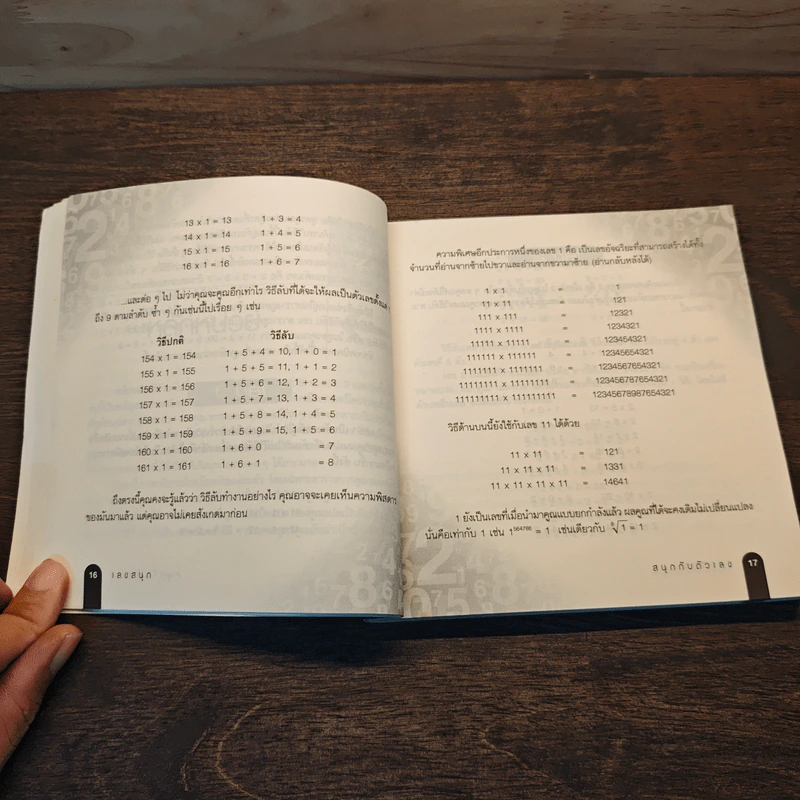 13 x 1 = 13 1 + 3 = 4
14 x 1 = 14 1 + 4 = 5
15 x 1 = 15 1 + 5 = 6
16 x 1 = 16 1 + 6 = 7
...และต่อ ๆ ไป ไม่ว่าคุณจะคูณอีกเท่าไร วิธีลับที่ได้จะให้ผลเป็นตัวเลขตั้งแต่
ถึง 9 ตามลำดับ ซ้ำ ๆ กันเช่นนี้ไปเรื่อย ๆ เช่น
วิธีปกติ วิธีลับ
154 x 1 = 154 1 + 5 + 4 = 10, 1 + 0 = 1
155 x 1 = 155 1 + 5 + 5 = 11, 1 + 1 = 2
156 x 1 = 156 1 + 5 + 6 = 12, 1 + 2 = 3
157 x 1 = 157 1 + 5 + 7 = 13, 1 + 3 = 4
158 x 1 = 158 1 + 5 + 8 = 14, 1 + 4 = 5
159 x 1 = 159 1 + 5 + 9 = 15, 1 + 5 = 6
160 x 1 = 160 1 + 6 + 0 = 7
161 x 1 = 161 1 + 6 + 1 = 8
ถึงตรงนี้คุณคงจะรู้แล้วว่า วิธีลับทำงานอย่างไร คุณอาจจะเคยเห็นความพิสดาร
ของมันมาแล้ว แต่คุณอาจไม่เคยสังเกตมาก่อน
16 เลขสนุก
ความพิเศษอีกประการหนึ่งของเลข 1 คือ เป็นเลขอัจฉริยะที่สามารถสร้างได้ทั้ง
จำนวนที่อ่านจากซ้ายไปขวาและอ่านจากขวามาซ้าย (อ่านกลับหลังได้)
1 x 1 = 1
11 x 11 = 121
111 x 111 = 12321
1111 x 1111 = 1234321
11111 x 11111 = 123454321
111111 x 111111 = 12345654321
1111111 x 1111111 = 1234567654321
11111111 x 11111111 = 123456787654321
111111111 x 111111111 = 12345678987654321
วิธีด้านบนนี้ยังใช้กับเลข 11 ได้ด้วย
11 x 11 = 121
11 x 11 x 11 = 1331
11 x 11 x 11 x 11 = 14641
1 ยังเป็นเลขที่เมื่อนำมาคูณแบบยกกำลังแล้ว ผลคูณที่ได้จะคงเดิมไม่เปลี่ยนแปลง
นั่นคือเท่ากับ 1 เช่น 1⁵⁶⁴⁷⁸⁶ = 1 เช่นเดียวกับ √1 = 1
สนุกกับตัวเลข 17